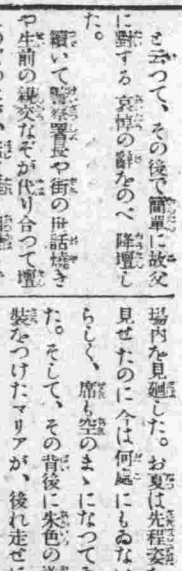 と云つて、その後で簡單に故父
に對する哀悼の辭をのべ降壇し
た。
續いて警察署長や街の世話燒き
や生前の親交なぞが代り合つて壇
場内を見廻した。お夏は先程姿
見せたのに今は何處にもゐな
らしく、席も空のまゝになつて
た。そして、その背後に朱色の
裝をつけたマリアが、後れ走せに